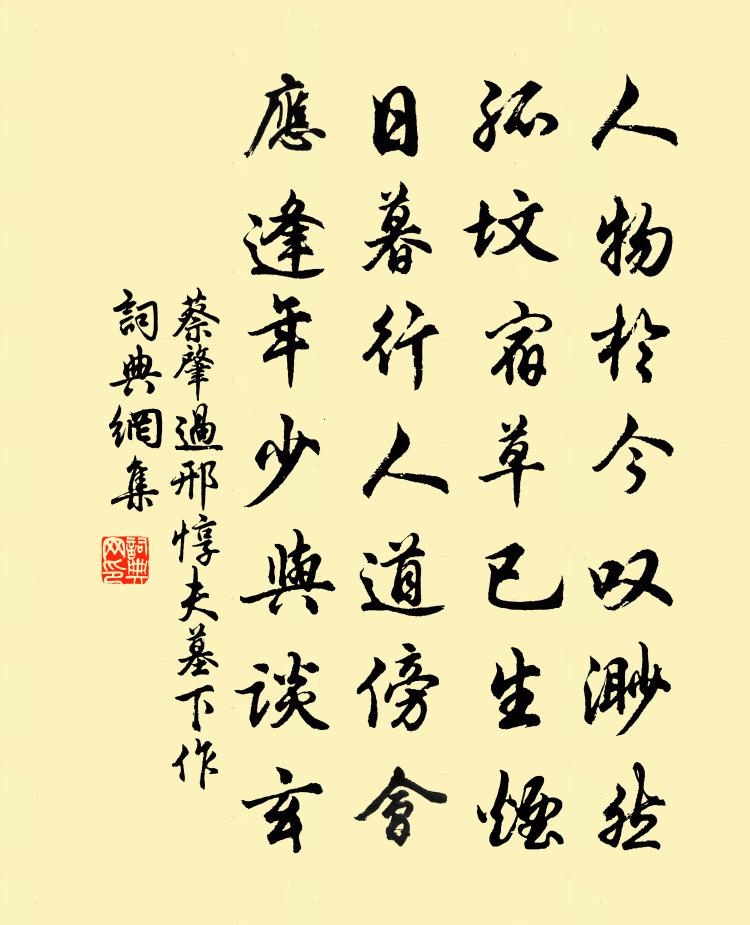 人物於今叹渺然
孤坟宿草已生煙
日暮行人道傍會
應逢年少與談玄
蔡肇過邢惇夫墓下作
詞典網集
詞典网印